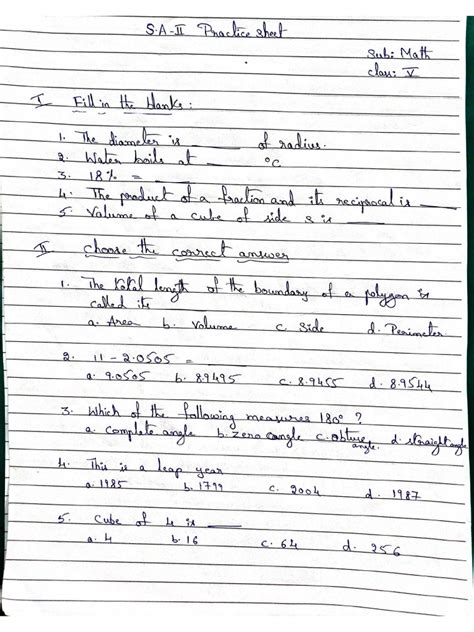 S.A-II Practice sheet
Sub: Math
class: V
I Fill in the blanks:
1. The diameter is ____ of radius.
2. Water boils at ____ °C
3. 18% = ____
4. The product of a fraction and its reciprocal is ____
5. Volume of a cube of side s is ____
II choose the correct answer
1. The total length of the boundary of a polygon is
called its
a. Area b. Volume c Side d. Perimeter
2. 11 - 2.0505 =
a. 9.0505 b. 8.9495 c. 8.9455 d. 8.9544
3. Which of the following measures 180° ?
a. complete angle b. zero angle c. obtuse angle. d. straight angle
4. This is a leap year
a. 1985 b. 1799 c. 2004 d. 1987
5. Cube of 4 is ____
a. 4 b. 16 c. 64 d. 256